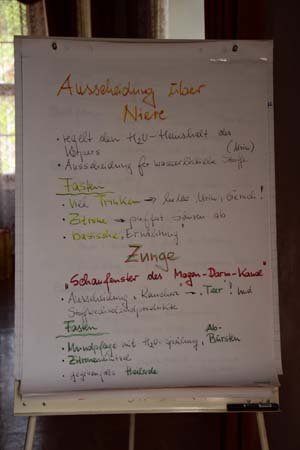 Ausscheidung über
Niere
• regelt den H₂O-Haushalt des
Körpers (Urin)
• Ausscheidung für wasserlösliche Stoffe
Fasten
• viel Trinken → Urin, Geruch!
• Zitrone → puffert Säuren ab
• basische Ernährung
Zunge
"Schaufenster des Magen-Darm-Kanal"
• Ausscheidung "Teer"! und
Stoffwechselendprodukte
Fasten
• Mundpflege mit H₂O-Spülung, Ab-
Bürsten
• Zitronen
• Heilerde